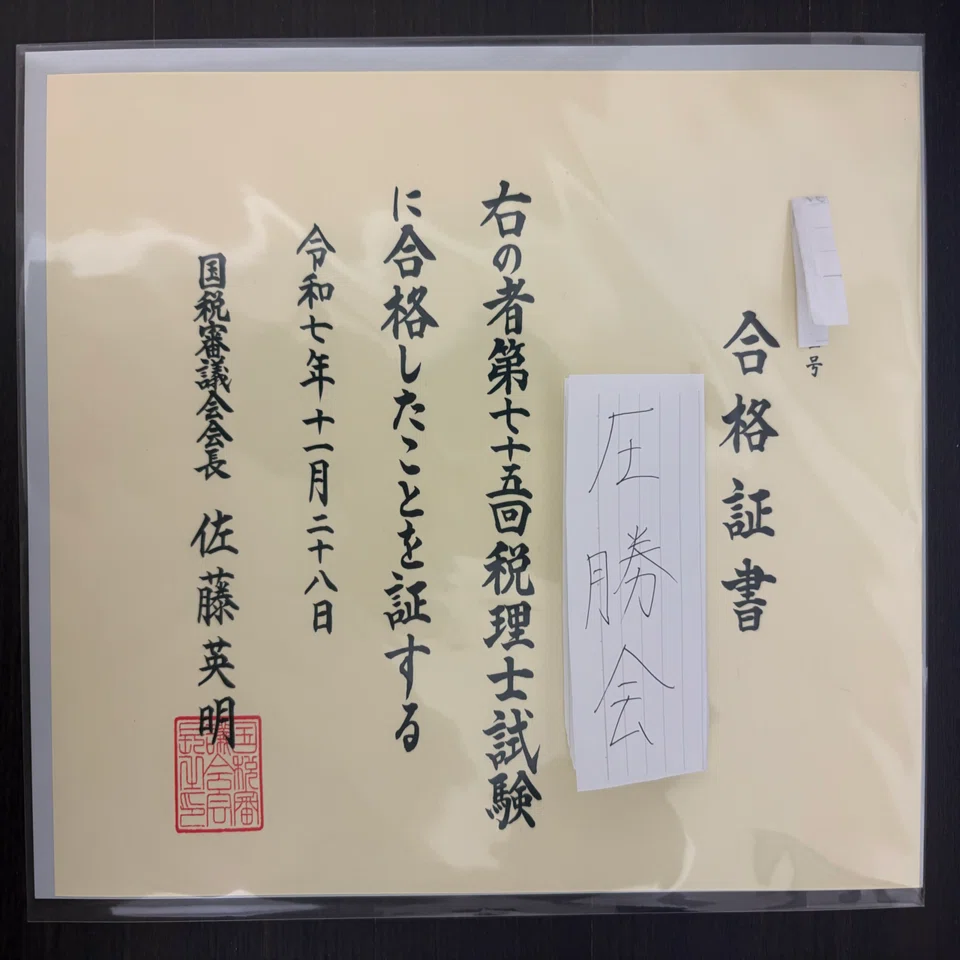 号
合格証書
圧勝会
右の者第七十五回税理士試験
に合格したことを証する
令和七年十一月二十八日
国税審議会会長 佐藤英明
国税審
議会会
長之印